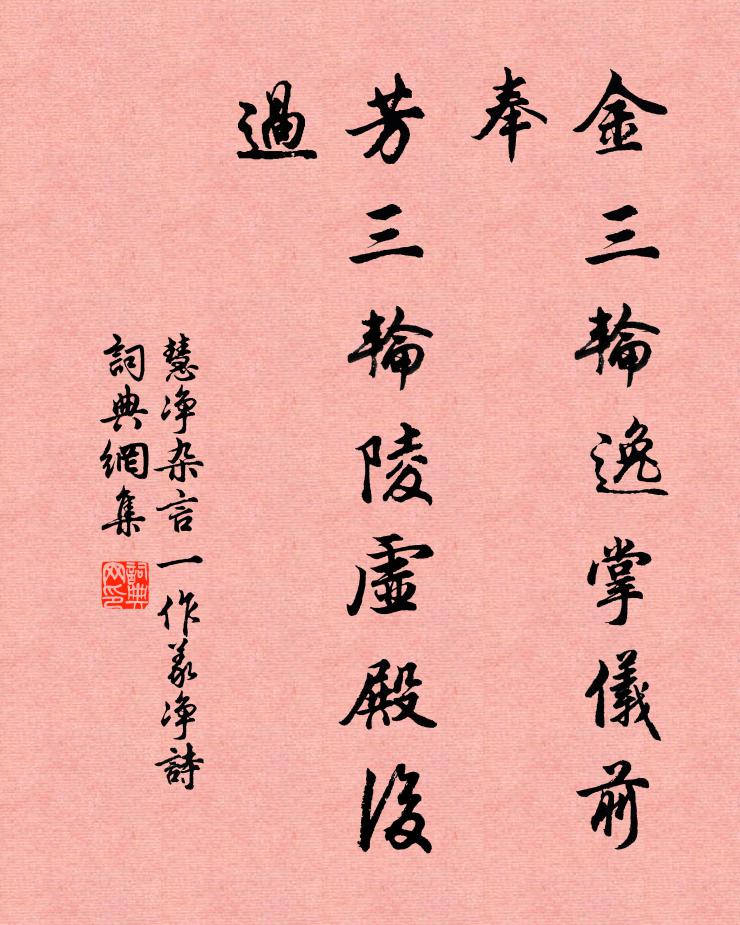 金三輪逸掌儀前
奉
芳三輪陵虛殿後
過
慧净杂言一作義净詩
詞典網集
詞典
网印